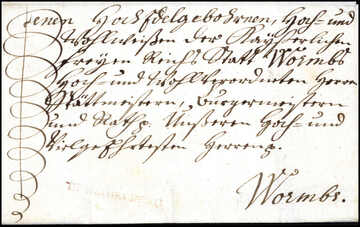 denen HochEdelgebohrnen, Hoch- und
Wohlweißen der Kayßerlichen
freyen Reichs Statt Wormbs
Hoch und Wohlverordneten Herrn
Stättmeistern, Burgermeistern
und Rath p. Unßeren Hoch- und
Vielgeehrtesten Herren p.
Wormbs.